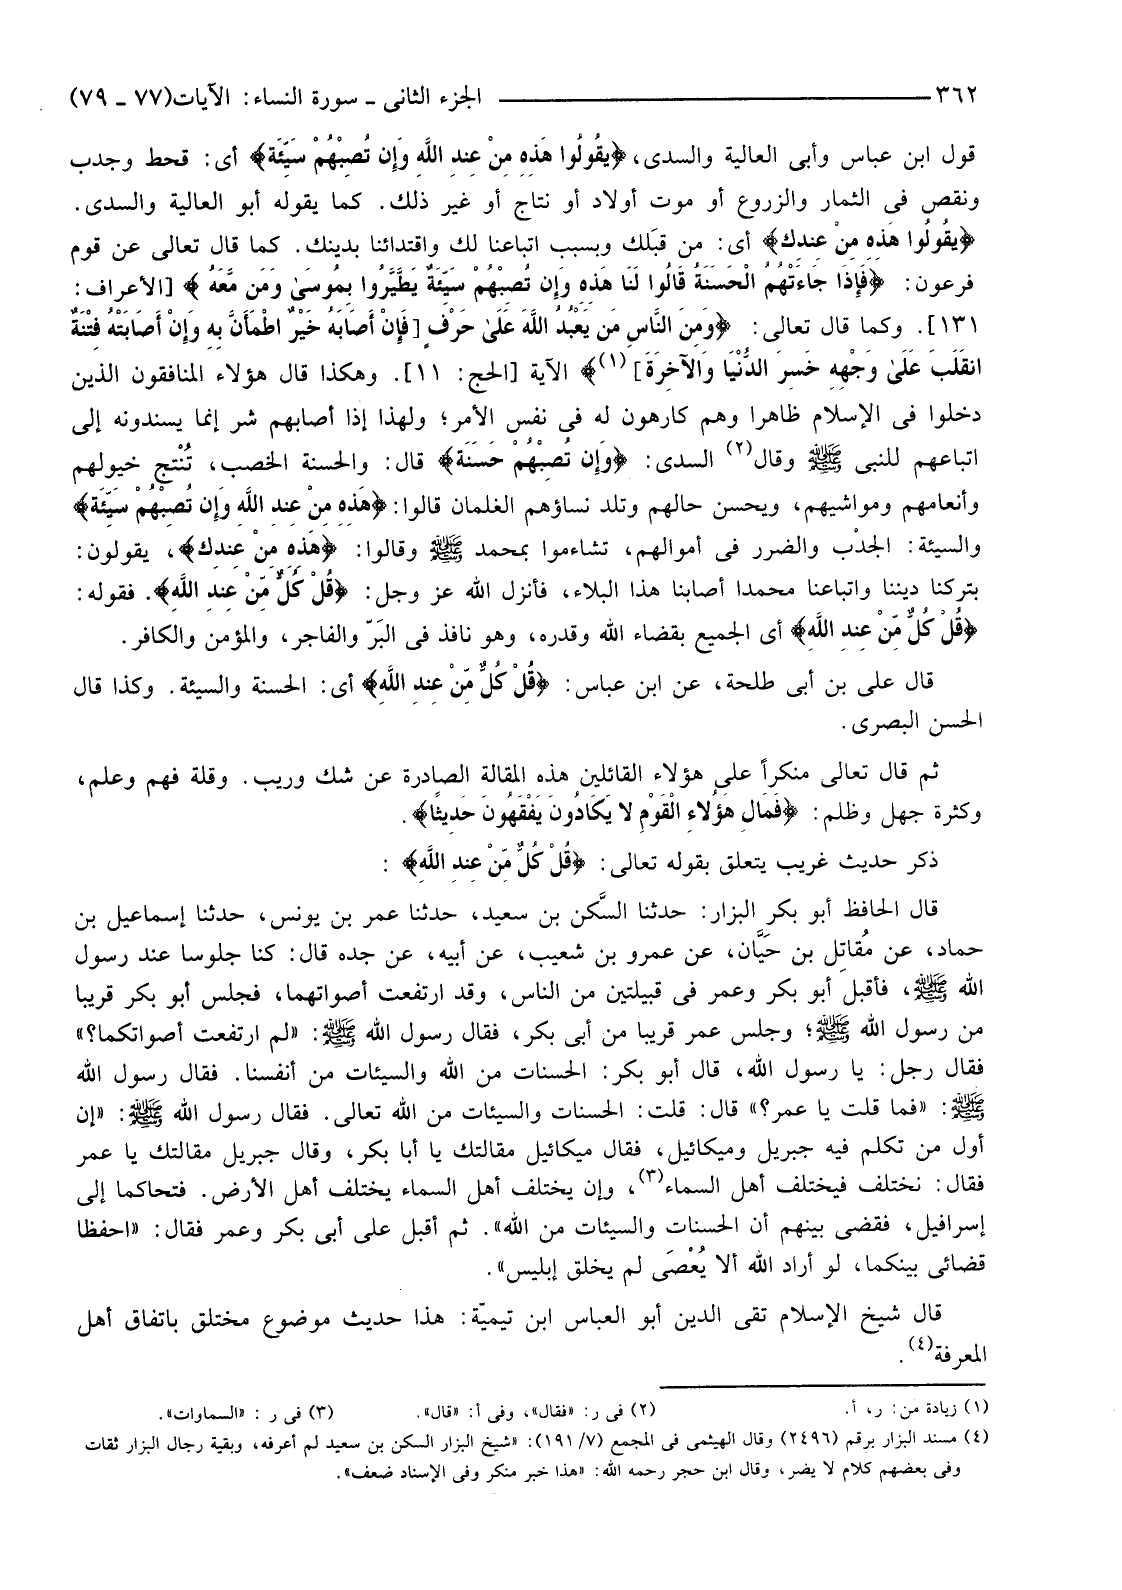 ٣٦٢ ــــــــــــــــ الجزء الثانى ـ سورة النساء: الآيات(٧٧ ـ ٧٩)
قول ابن عباس وأبى العالية والسدى، ﴿يقُولُوا هَذِهِ مِنْ عِندِ اللَّهِ وَإِن تُصِبْهُمْ سَيِّئَة﴾ أى: قحط وجدب
ونقص فى الثمار والزروع أو موت أولاد أو نتاج أو غير ذلك. كما يقوله أبو العالية والسدى.
﴿يقُولُوا هَذِهِ مِنْ عِندِكَ﴾ أى: من قبَلك وبسبب اتباعنا لك واقتدائنا بدينك. كما قال تعالى عن قوم
فرعون: ﴿فَإِذَا جَاءَتْهُمُ الْحَسَنَةُ قَالُوا لَنَا هَذِهِ وَإِن تُصِبْهُمْ سَيِّئَةٌ يَطَّيَّرُوا بِمُوسَىٰ وَمَن مَّعَهُ ﴾ [الأعراف:
١٣١]. وكما قال تعالى: ﴿وَمِنَ النَّاسِ مَن يَعْبُدُ اللَّهَ عَلَىٰ حَرْفٍ [فَإِنْ أَصَابَهُ خَيْرٌ اطْمَأَنَّ بِهِ وَإِنْ أَصَابَتْهُ فِتْنَةٌ
انقَلَبَ عَلَىٰ وَجْهِهِ خَسِرَ الدُّنْيَا وَالآخِرَةَ] (١)﴾ الآية [الحج: ١١]. وهكذا قال هؤلاء المنافقون الذين
دخلوا فى الإسلام ظاهرا وهم كارهون له فى نفس الأمر؛ ولهذا إذا أصابهم شر إنما يسندونه إلى
اتباعهم للنبى ﷺ وقال(٢) السدى: ﴿وَإِن تُصِبْهُمْ حَسَنَة﴾ قال: والحسنة الخصب، تُنْتج خيولهم
وأنعامهم ومواشيهم، ويحسن حالهم وتلد نساؤهم الغلمان قالوا: ﴿هَذِهِ مِنْ عِندِ اللَّهِ وَإِن تُصِبْهُمْ سَيِّئَة﴾
والسيئة: الجدْب والضرر فى أموالهم، تشاءموا بمحمد ﷺ وقالوا: ﴿هَذِهِ مِنْ عِندِكَ﴾، يقولون:
بتركنا ديننا واتباعنا محمدا أصابنا هذا البلاء، فأنزل الله عز وجل: ﴿قُلْ كُلٌّ مِّنْ عِندِ اللَّهِ﴾. فقوله:
﴿قُلْ كُلٌّ مِّنْ عِندِ اللَّهِ﴾ أى الجميع بقضاء الله وقدره، وهو نافذ فى البَرّ والفاجر، والمؤمن والكافر.
قال على بن أبى طلحة، عن ابن عباس: ﴿قُلْ كُلٌّ مِّنْ عِندِ اللَّهِ﴾ أى: الحسنة والسيئة. وكذا قال
الحسن البصرى.
ثم قال تعالى منكراً على هؤلاء القائلين هذه المقالة الصادرة عن شك وريب. وقلة فهم وعلم،
وكثرة جهل وظلم: ﴿فَمَالِ هَؤُلاءِ الْقَوْمِ لا يَكَادُونَ يَفْقَهُونَ حَدِيثًا﴾.
ذكر حديث غريب يتعلق بقوله تعالى: ﴿قُلْ كُلٌّ مِّنْ عِندِ اللَّهِ﴾ :
قال الحافظ أبو بكر البزار: حدثنا السَّكن بن سعيد، حدثنا عمر بن يونس، حدثنا إسماعيل بن
حماد، عن مُقاتِل بن حَيَّان، عن عمرو بن شعيب، عن أبيه، عن جده قال: كنا جلوسا عند رسول
الله ﷺ، فأقبل أبو بكر وعمر فى قبيلتين من الناس، وقد ارتفعت أصواتهما، فجلس أبو بكر قريبا
من رسول الله ﷺ؛ وجلس عمر قريبا من أبى بكر، فقال رسول الله ﷺ: «لم ارتفعت أصواتكما؟»
فقال رجل: يا رسول الله، قال أبو بكر: الحسنات من الله والسيئات من أنفسنا. فقال رسول الله
ﷺ: «فما قلت يا عمر؟» قال: قلت: الحسنات والسيئات من الله تعالى. فقال رسول الله ﷺ: «إن
أول من تكلم فيه جبريل وميكائيل، فقال ميكائيل مقالتك يا أبا بكر، وقال جبريل مقالتك يا عمر
فقال: نختلف فيختلف أهل السماء(٣)، وإن يختلف أهل السماء يختلف أهل الأرض. فتحاكما إلى
إسرافيل، فقضى بينهم أن الحسنات والسيئات من الله». ثم أقبل على أبى بكر وعمر فقال: «احفظا
قضائى بينكما، لو أراد الله ألا يُعْصَى لم يخلق إبليس».
قال شيخ الإسلام تقى الدين أبو العباس ابن تيميّة: هذا حديث موضوع مختلق باتفاق أهل
المعرفة(٤).
(١) زيادة من: ر، أ. (٢) فى ر: «فقال»، وفى أ: «قال». (٣) فى ر : «السماوات».
(٤) مسند البزار برقم (٢٤٩٦) وقال الهيثمى فى المجمع (٧/ ١٩١): «شيخ البزار السكن بن سعيد لم أعرفه، وبقية رجال البزار ثقات
وفى بعضهم كلام لا يضر، وقال ابن حجر رحمه الله: «هذا خبر منكر وفى الإسناد ضعف».